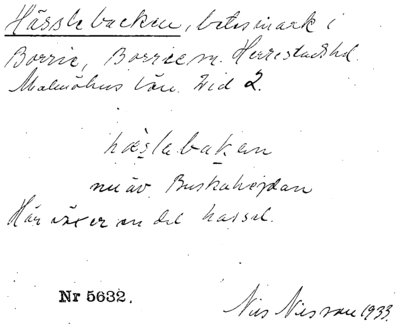 Hässlebacken, betesmark i
Borrie, Borrie sn. Herrestads hd.
Malmöhus län. Zid 2.
hæslabakan
nuäv. Buskahöjdan
Här växer en del hassel.
Nr 5632.
Nils Nilsson 1933.